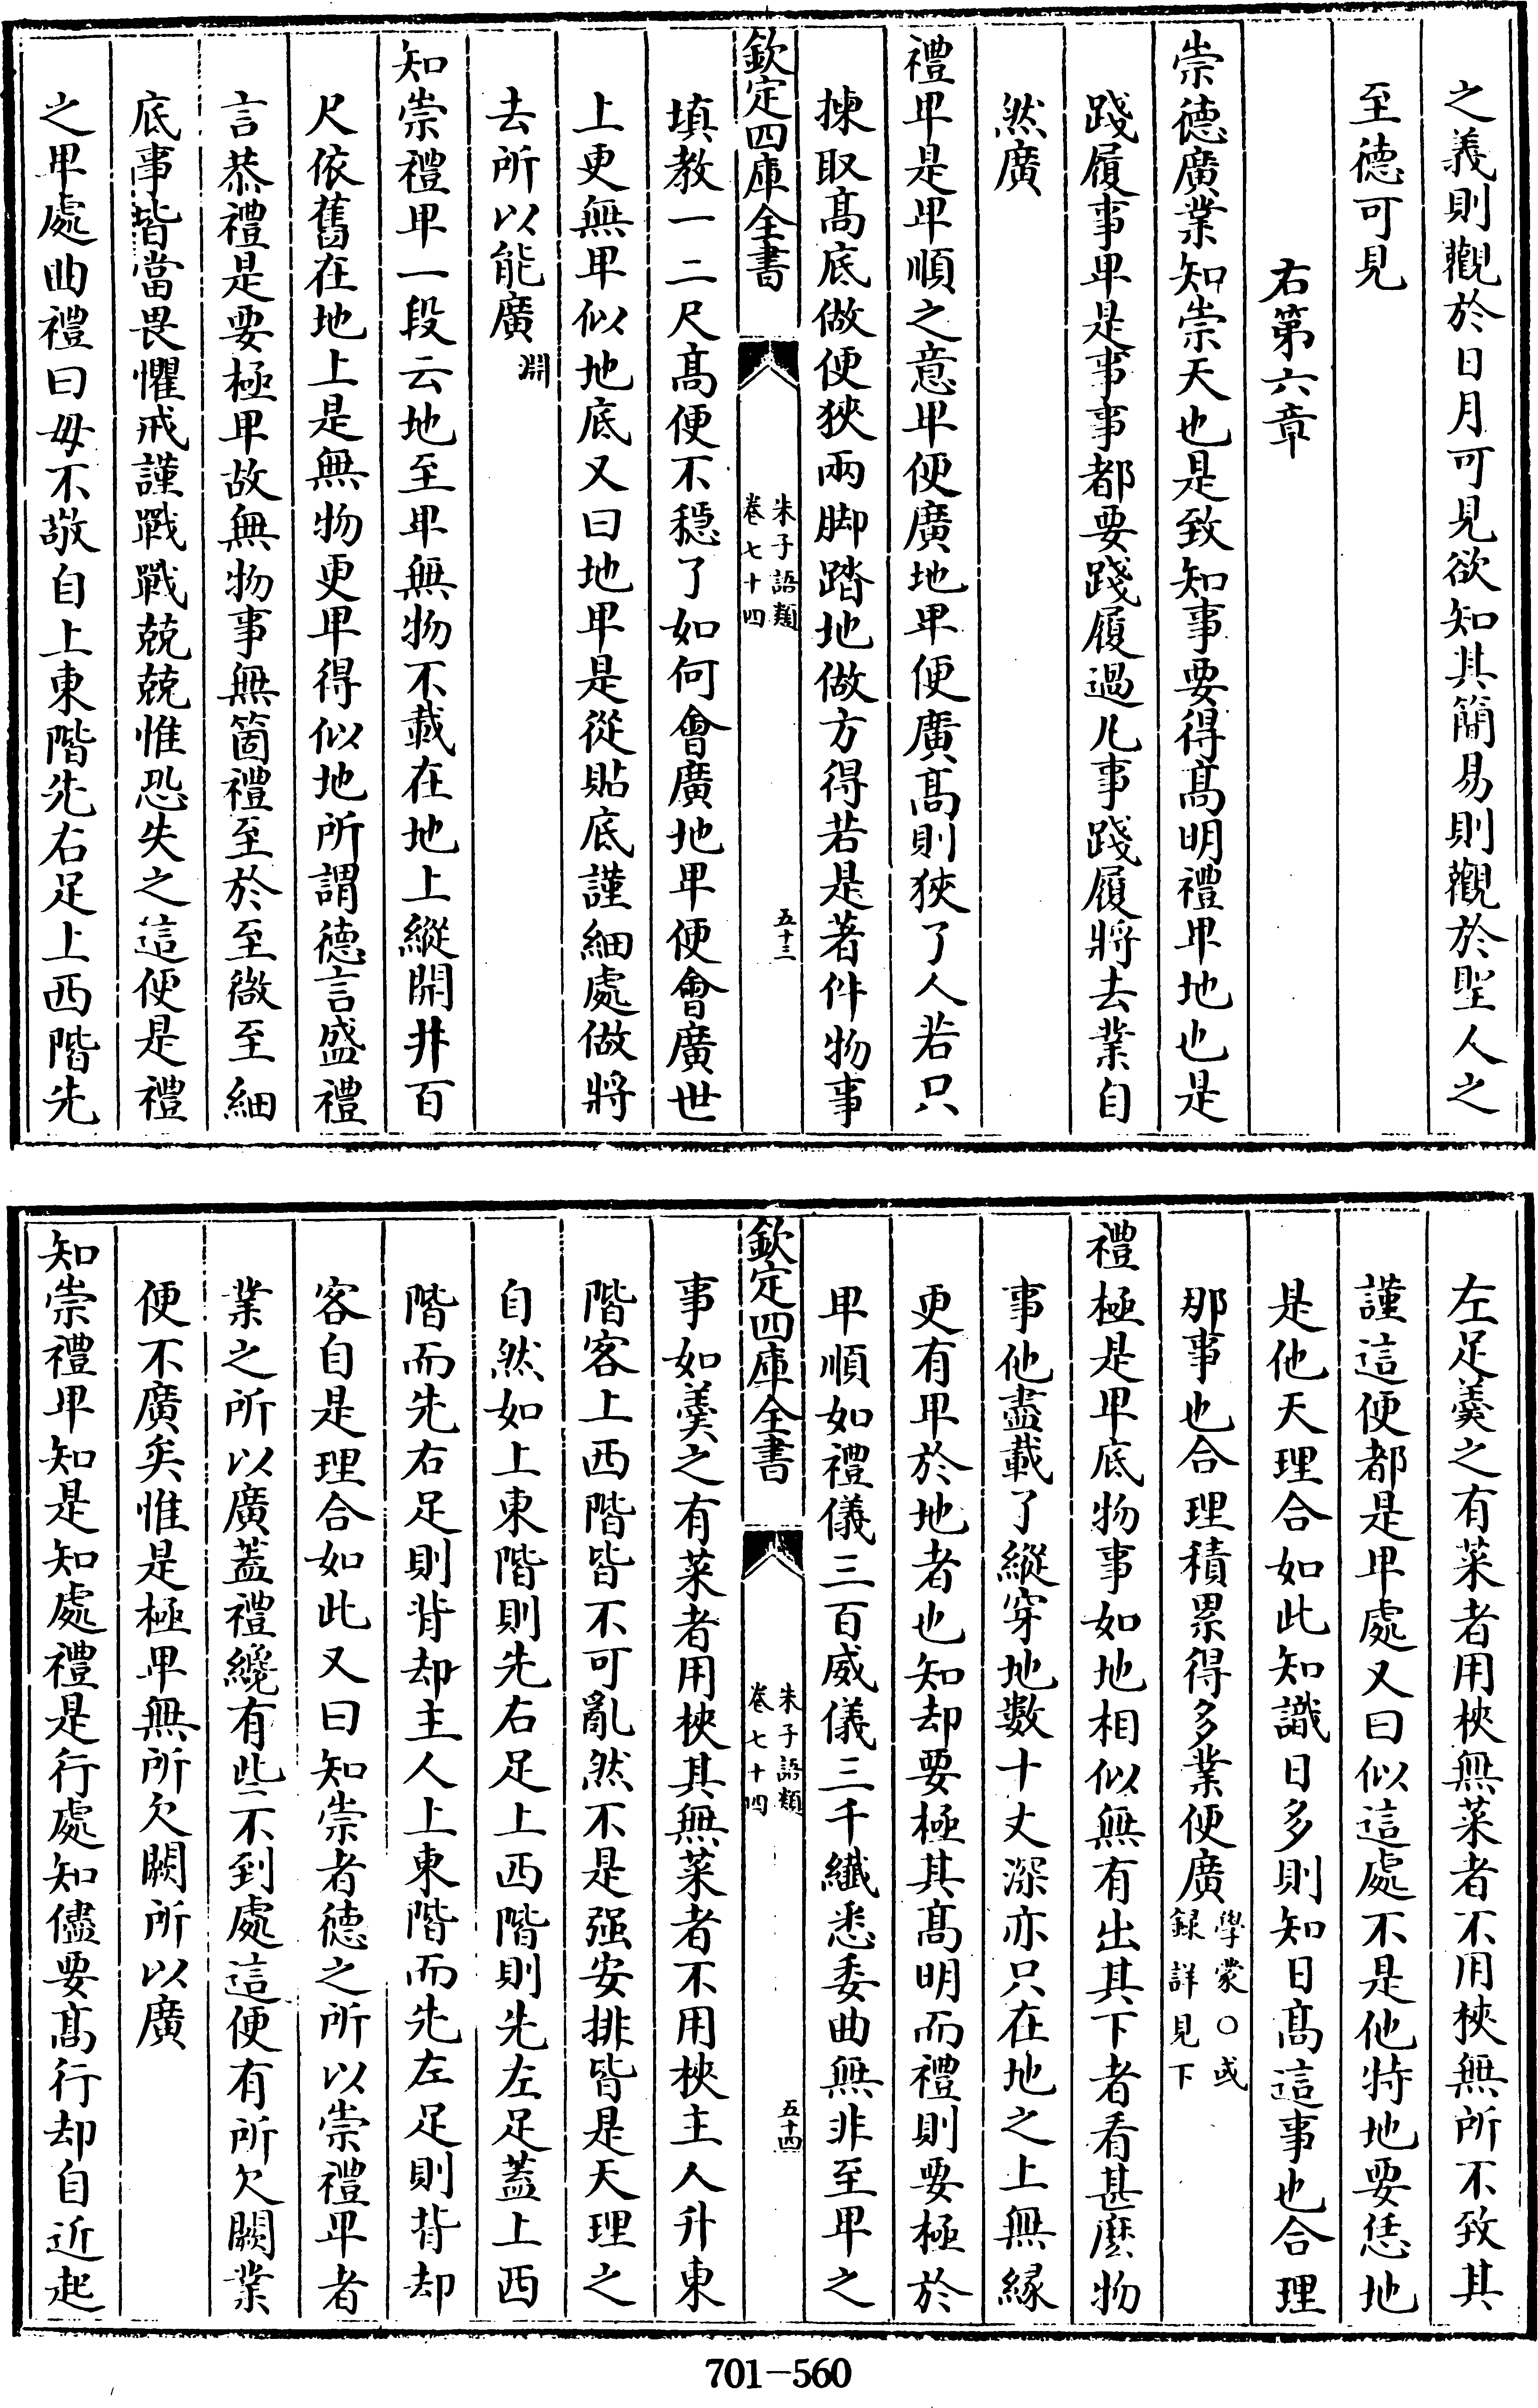 之義則觀於日月可見欲知其簡易則觀於聖人之
至德可見
右第六章
崇德廣業知崇天也是致知事要得髙明禮卑地也是
踐履事卑是事事都要踐履過凡事踐履將去業自
然廣
禮卑是卑順之意卑便廣地卑便廣髙則狹了人若只
揀取髙底做便狹兩脚踏地做方得若是著件物事
欽定四庫全書
朱子語類
卷七十四
五十三
填教一二尺髙便不穩了如何會廣地卑便會廣世
上更無卑似地底又曰地卑是從貼底謹細處做將
去所以能廣淵
知崇禮卑一段云地至卑無物不載在地上縱開井百
尺依舊在地上是無物更卑得似地所謂德言盛禮
言恭禮是要極卑故無物事無箇禮至於至微至細
底事皆當畏懼戒謹戰戰兢兢惟恐失之這便是禮
之卑處曲禮曰毋不敬自上東階先右足上西階先
左足羹之有菜者用梜無菜者不用梜無所不致其
謹這便都是卑處又曰似這處不是他特地要恁地
是他天理合如此知識日多則知日髙這事也合理
那事也合理積累得多業便廣學蒙○或
録詳見下
禮極是卑底物事如地相似無有出其下者看甚麽物
事他盡載了縱穿地數十丈深亦只在地之上無縁
更有卑於地者也知却要極其髙明而禮則要極於
卑順如禮儀三百威儀三千纎悉委曲無非至卑之
欽定四庫全書
朱子語類
卷七十四
五十四
事如羹之有菜者用梜其無菜者不用梜主人升東
階客上西階皆不可亂然不是强安排皆是天理之
自然如上東階則先右足上西階則先左足蓋上西
階而先右足則背却主人上東階而先左足則背却
客自是理合如此又曰知崇者德之所以崇禮卑者
業之所以廣蓋禮纔有些不到處這便有所欠闕業
便不廣矣惟是極卑無所欠闕所以廣
知崇禮卑知是知處禮是行處知儘要髙行却自近起
701-560